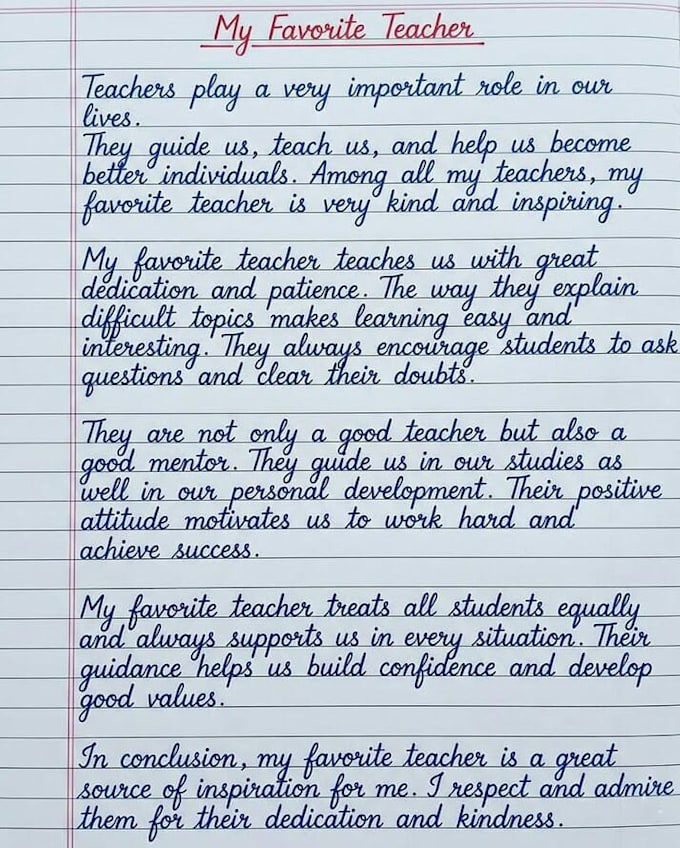 My Favorite Teacher
Teachers play a very important role in our
lives.
They guide us, teach us, and help us become
better individuals. Among all my teachers, my
favorite teacher is very kind and inspiring.
My favorite teacher teaches us with great
dedication and patience. The way they explain
difficult topics makes learning easy and
interesting. They always encourage students to ask
questions and clear their doubts.
They are not only a good teacher but also a
good mentor. They guide us in our studies as
well in our personal development. Their positive
attitude motivates us to work hard and
achieve success.
My favorite teacher treats all students equally
and always supports us in every situation. Their
guidance helps us build confidence and develop
good values.
In conclusion, my favorite teacher is a great
source of inspiration for me. I respect and admire
them for their dedication and kindness.